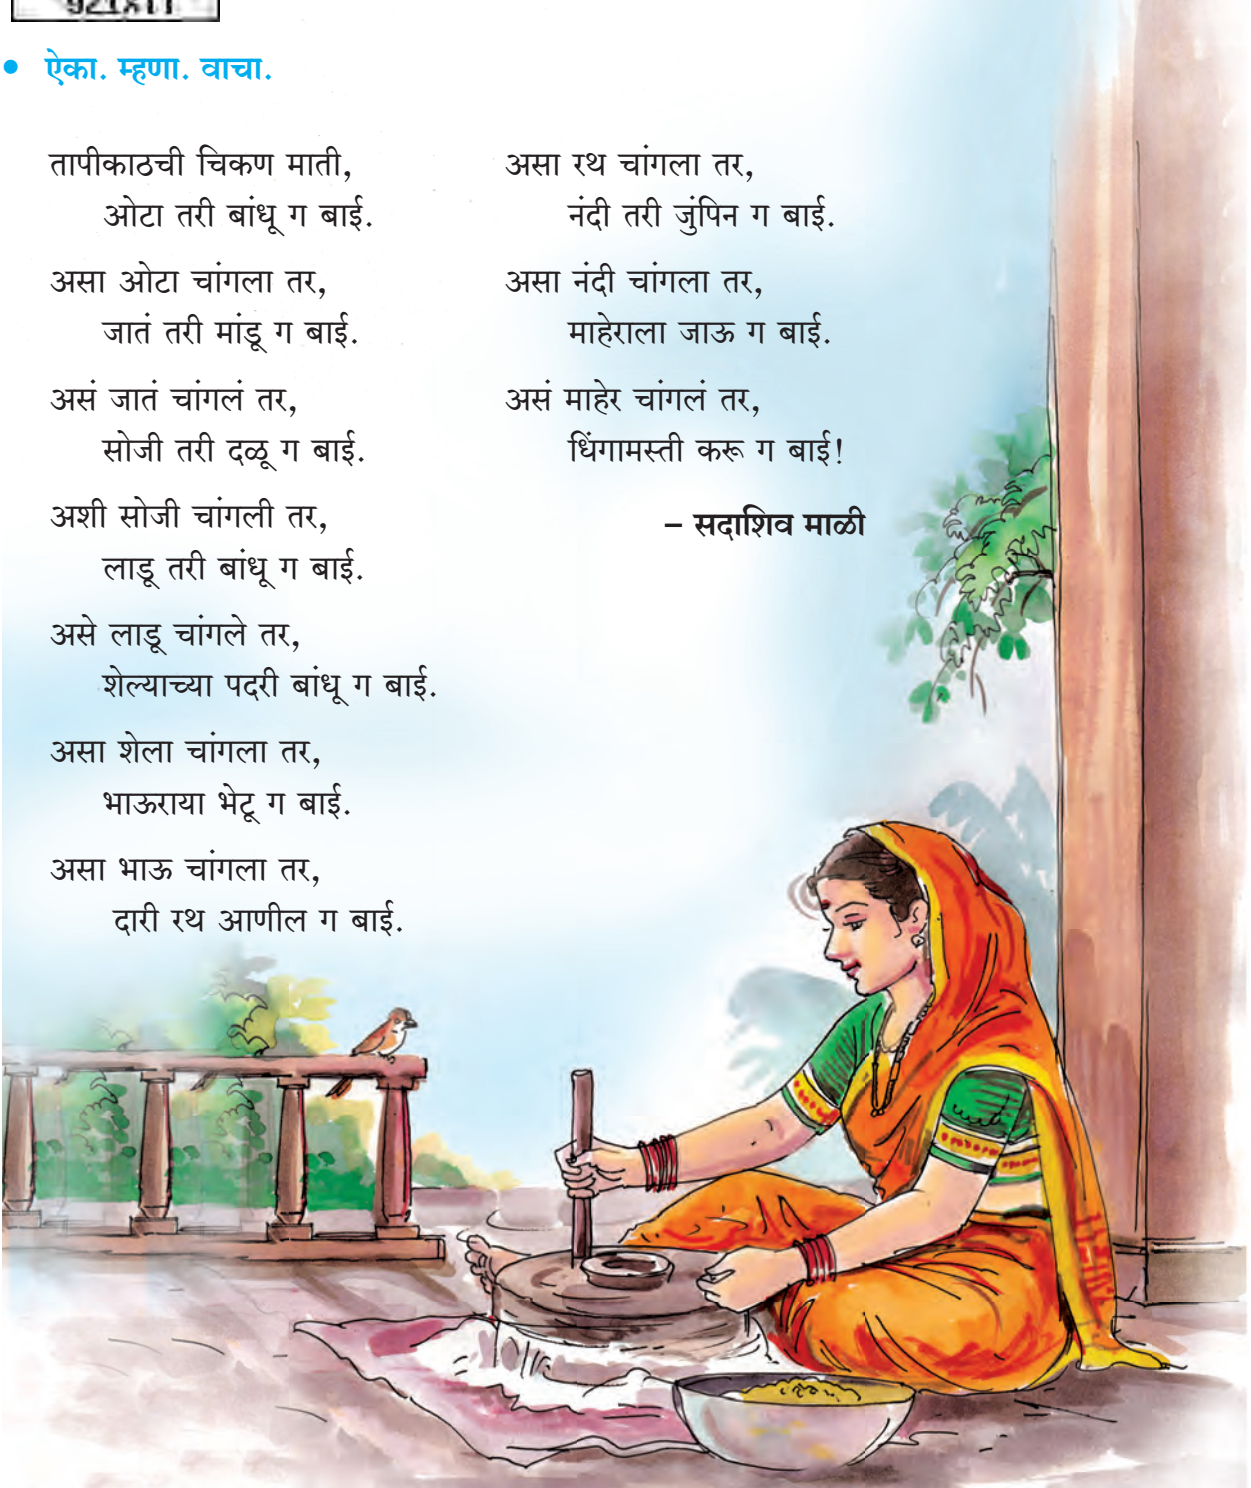 • ऐका. म्हणा. वाचा.
तापीकाठची चिकण माती,
ओटा तरी बांधू ग बाई.
असा ओटा चांगला तर,
जातं तरी मांडू ग बाई.
असं जातं चांगलं तर,
सोजी तरी दळू ग बाई.
अशी सोजी चांगली तर,
लाडू तरी बांधू ग बाई.
असे लाडू चांगले तर,
शेल्याच्या पदरी बांधू ग बाई.
असा शेला चांगला तर,
भाऊराया भेटू ग बाई.
असा भाऊ चांगला तर,
दारी रथ आणील ग बाई.
असा रथ चांगला तर,
नंदी तरी जुंपिन ग बाई.
असा नंदी चांगला तर,
माहेराला जाऊ ग बाई.
असं माहेर चांगलं तर,
धिंगामस्ती करू ग बाई!
– सदाशिव माळी